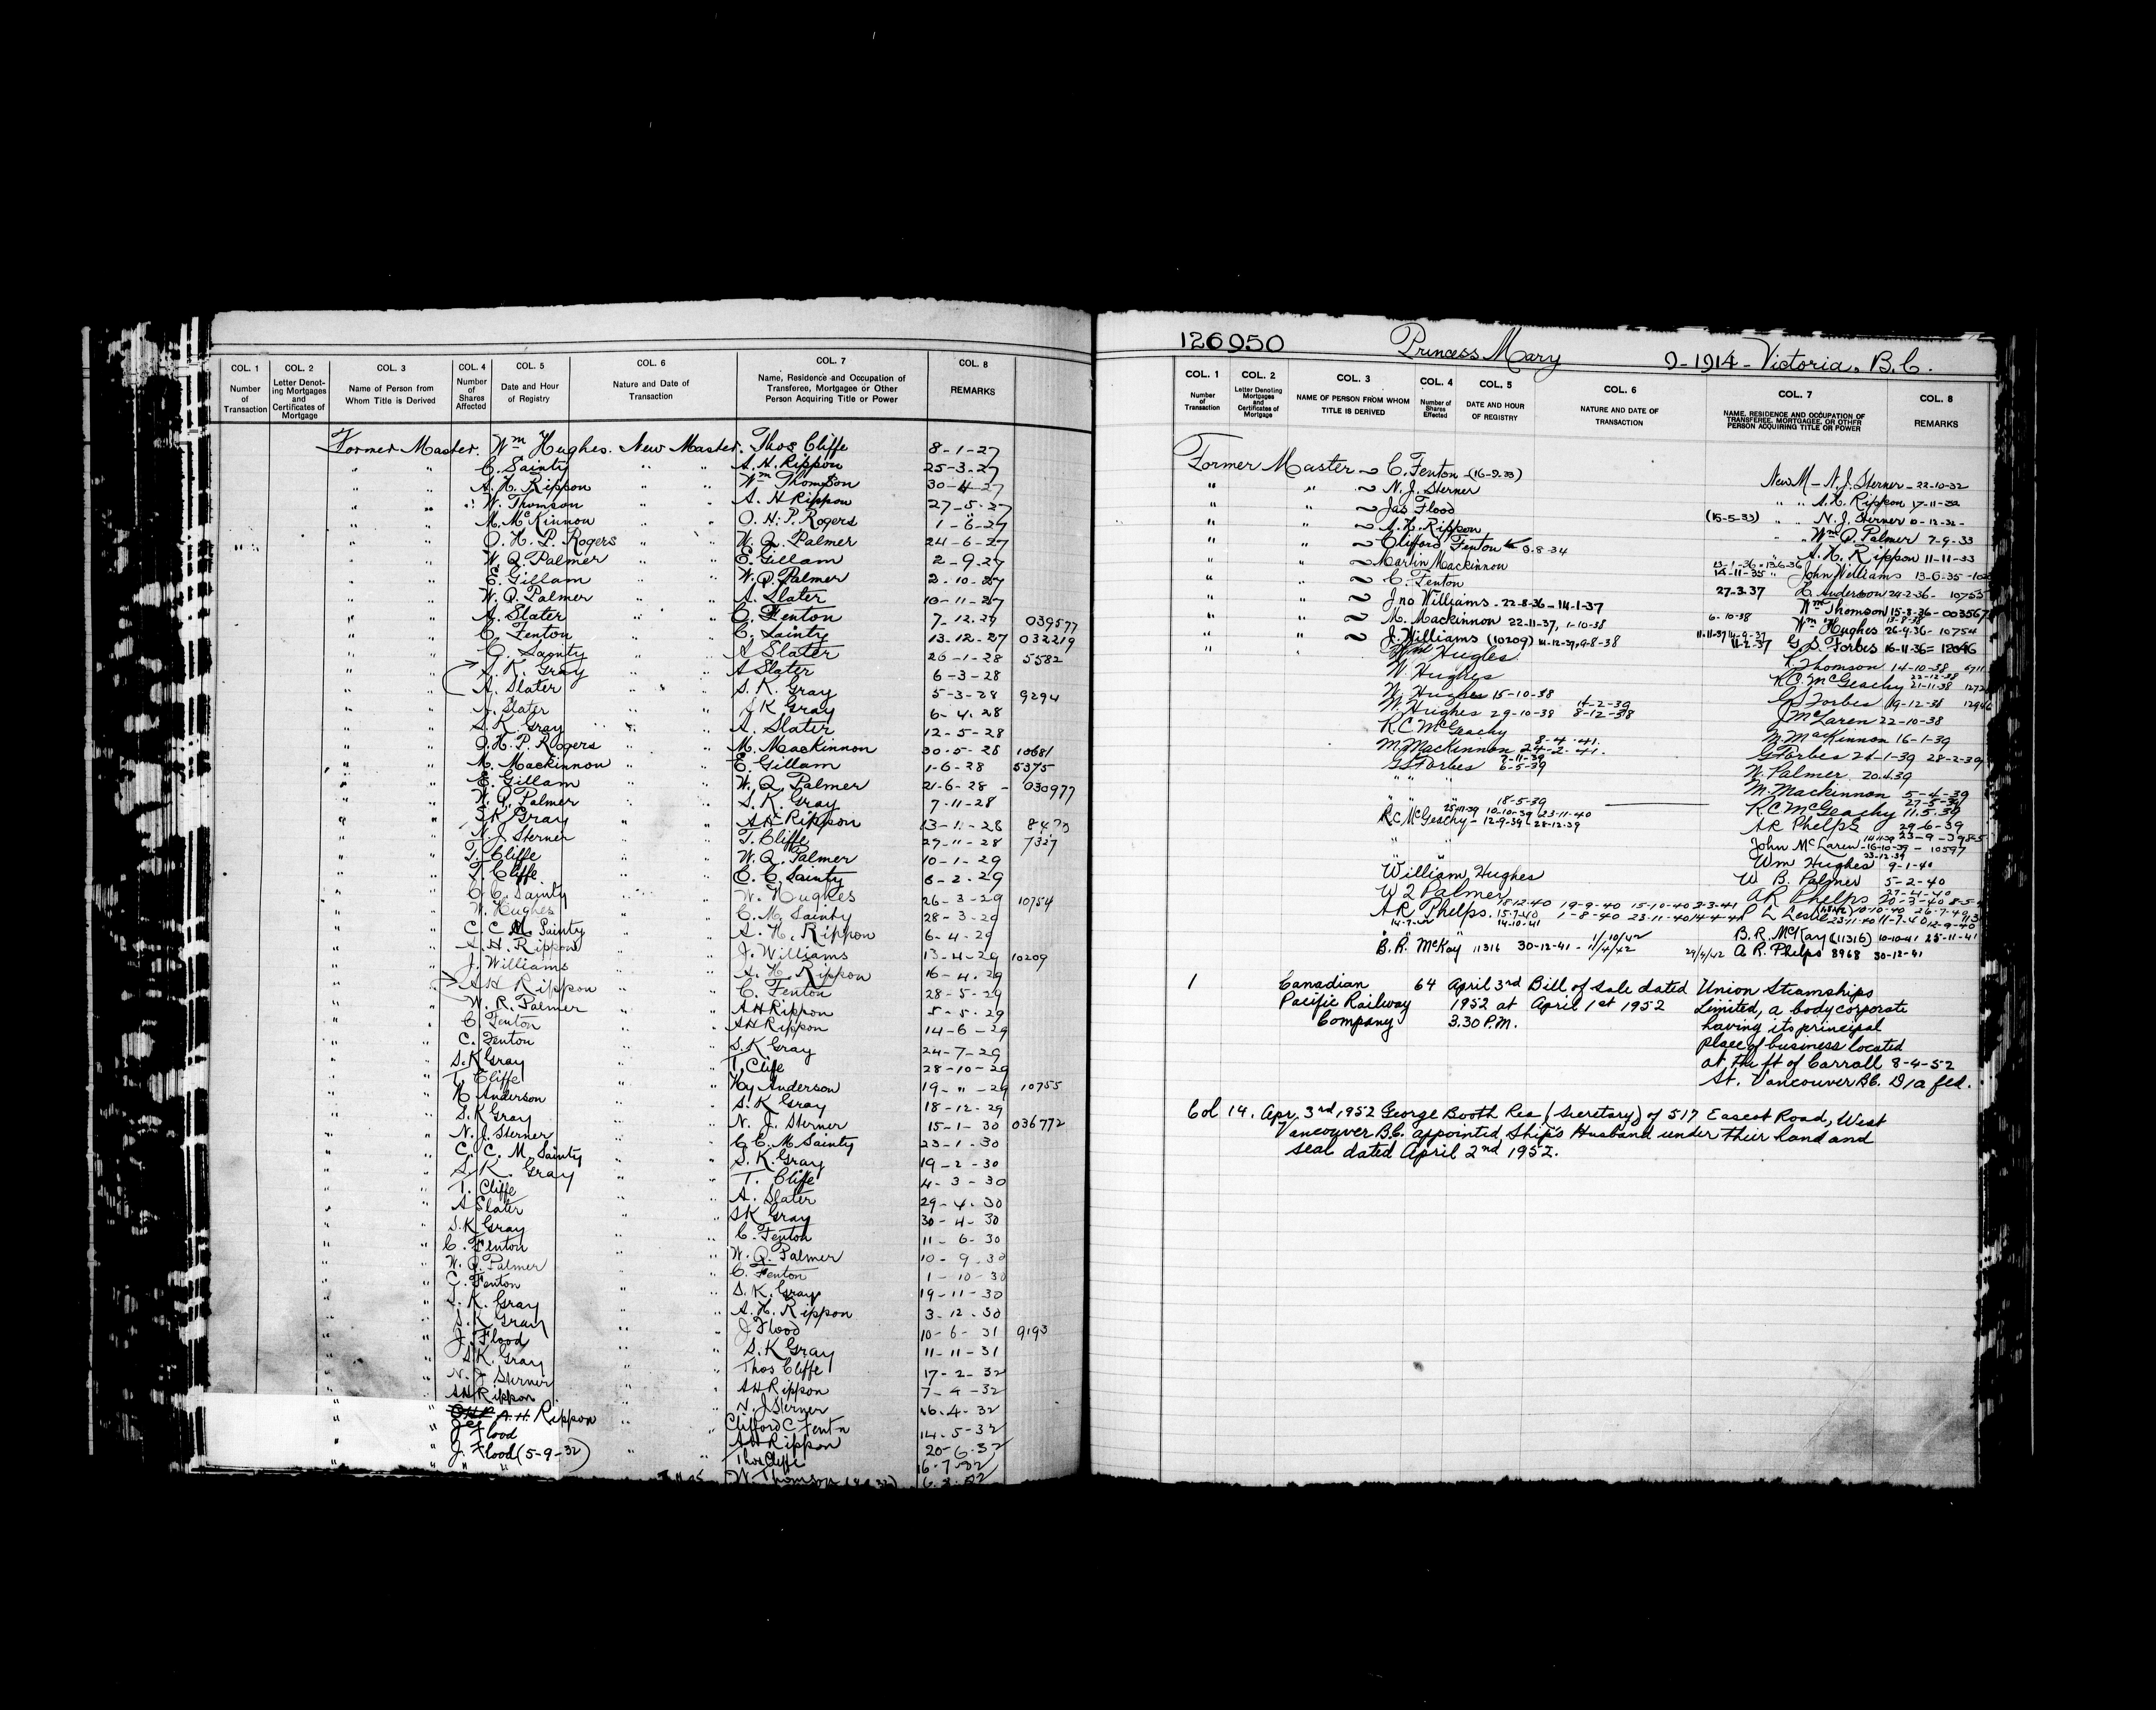 COL. 1 COL. 2 COL. 3 COL. 4 COL. 5 COL. 6 COL. 7 COL. 8
Number of Transaction
Letter Denoting Mortgages and Certificates of Mortgage
Name of Person from Whom Title is Derived
Number of Shares Affected
Date and Hour of Registry
Nature and Date of Transaction
Name, Residence and Occupation of Transferee, Mortgagee or Other Person Acquiring Title or Power
REMARKS
Former Master. Wm Hughes. New Master. Thos Cliffe 8-1-27
" " C. Sainty " " A. H. Rippon 25-3-27
" " A. H. Rippon " " Wm Thomson 30-4-27
" " W. Thomson " " A. H Rippon 27-5-27
" " M. McKinnon " " O. H. P. Rogers 1-6-27
" " O. H. P. Rogers " " W. Q. Palmer 24-6-27
" " W. Q. Palmer " " E. Gillam 2-9-27
" " E. Gillam " " W. Q. Palmer 2-10-27
" " W. Q. Palmer " " A. Slater 10-11-27
" " A. Slater " " C. Fenton 7-12-27 039577
" " C. Fenton " " C. Sainty 13-12-27 032219
" " C. Sainty " " A Slater 26-1-28 5582
" " S. K. Gray " " A Slater 6-3-28
" " A. Slater " " S. K. Gray 5-3-28 9294
" " A. Slater " " S K Gray 6-4-28
" " S. K. Gray " " A. Slater 12-5-28
" " O. H. P. Rogers " " M. MacKinnon 30-5-28 10681
" " M. Mackinnon " " E. Gillam 1-6-28 5375
" " E. Gillam " " W. Q. Palmer 21-6-28 - 030977
" " W. Q. Palmer " " S. K. Gray 7-11-28
" " S K Gray " " A H Rippon
" " N. J. Sterner " " T. Cliffe 27-11-28 7327
" " T. Cliffe " " W. Q. Palmer 10-1-29
" " T. Cliffe " " C. C. Sainty 6-2-29
" " C. C. Sainty " " W. Hughes 26-3-29 10754
" " W. Hughes " " C. M. Sainty 28-3-29
" " C. C. M. Sainty " " A. H. Rippon 6-4-29
" " A. H. Rippon " " J. Williams 13-4-29 10209
" " J. Williams " " A. H. Rippon 16-4-29
" " A H Rippon " " C. Fenton 28-5-29
" " W. R. Palmer " " A H Rippon 5-5-29
" " C. Fenton " " A H Rippon 14-6-29
" " C. Fenton " " S. K Gray 24-7-29
" " S. K Gray " " T. Cliffe 28-10-29
" " T. Cliffe " " Hy Anderson 19-"-29 10755
" " H Anderson " " S. K Gray 18-12-29
" " S. K Gray " " N. J. Sterner 15-1-30 036772
" " N. J. Sterner " " C. C. M Sainty 23-1-30
" " C. C. M. Sainty " " S. K. Gray 19-2-30
" " S. K. Gray " " T. Cliffe 4-3-30
" " T. Cliffe " " A. Slater 29-4-30
" " A Slater " " S K Gray 30-4-30
" " S. K Gray " " C. Fenton 11-6-30
" " C. Fenton " " W. Q. Palmer 10-9-30
" " W. Q. Palmer " " C. Fenton 1-10-30
" " C. Fenton " " S. K. Gray 19-11-30
" " S. K. Gray " " A. H. Rippon 3-12-30
" " S. K. Gray " " J Flood 10-6-31 9193
" " J. Flood " " S. K Gray 11-11-31
" " S. K. Gray " " Thos Cliffe 17-2-32
" " N. J. Sterner " " A H Rippon 7-4-32
" " A H Rippon " " N. J Sterner 16.4-32
" " A. H. Rippon " " Clifford C Fenton 14-5-32
" " Jas Flood " " A H Rippon 20-6-32
" " J. Flood (5-9-32) " " Thos Cliffe 16-7-32
W. Thomson
126950 Princess Mary 9-1914-Victoria, B.C.
COL. 1 COL. 2 COL. 3 COL. 4 COL. 5 COL. 6 COL. 7 COL. 8
Number of Transaction
Letter Denoting Mortgages and Certificates of Mortgage
NAME OF PERSON FROM WHOM TITLE IS DERIVED
Number of Shares Effected
DATE AND HOUR OF REGISTRY
NATURE AND DATE OF TRANSACTION
NAME, RESIDENCE AND OCCUPATION OF TRANSFEREE, MORTGAGEE, OR OTHER PERSON ACQUIRING TITLE OR POWER
REMARKS
Former Master ~ C. Fenton New M - N. J. Sterner - 22-10-32
" " ~ N. J. Sterner " " A. H. Rippon 17-11-32
" " ~ Jas Flood (15-5-33) " " N. J. Sterner
" " ~ A. H. Rippon " " Wm Q. Palmer 7-9-33
" " ~ Clifford Fenton " A. H. Rippon 11-11-33
" " ~ Martin Mackinnon 14-11-35 " John Williams 13-6-35
" " ~ C. Fenton 27-3-37 H. Anderson 24-2-36 - 10755
" " ~ Jno Williams - 22-8-36 - 14-1-37 Wm Thomson 15-8-36
" " ~ M. Mackinnon 22-11-37, 1-10-38 6-10-38 Wm Hughes 26-9-36 - 10754
" " ~ J. Williams (10209) 14-12-37, 9-8-38 11-2-37 G. S. Forbes 16-11-36 = 12046
Wm Hughes
W. Hughes K Thomson 14-10-38
W. Hughes 15-10-38 R C. McGeachy 21-11-38
W. Hughes 29-10-38 8-12-38 GS Forbes 19-12-38
R C McGeachy J McLaren 22-10-38
M. Mackinnon 24-2-41. 8-4-41. M. MacKinnon 16-1-39
GS Forbes 6-5-39 7-11-39 G Forbes 21-1-39 28-2-39
" " W. Palmer 20.4.39
M. Mackinnon 5-4-39
" " 18-5-39 R C McGeachy 11.5.39
R C McGeachy - 12-9-39 28-12-39 AR Phelps 29-6-39
25-11-39 10-10-39 23-11-40
John McLaren - 16-10-39 - 10597
" " Wm Hughes 9-1-40
William Hughes W B. Palmer 5-2-40
W Q Palmer AR Phelps 20-3-40
AR Phelps. 15-7-40 1-8-40 23-11-40 L Leslie
" " 14-10-41 B. R. McKay (11316) 10-10-41 25-11-41
B. R. McKay 11316 30-12-41 - 11/4/42 29/4/42 A R. Phelps 8968 30-12-41
1 Canadian 64 April 3rd Bill of Sale dated Union Steamships
Pacific Railway 1952 at April 1st 1952 Limited, a body corporate
Company 3.30 P.M. having its principal
place of business located
at the ft of Carrall 8-4-52
St. Vancouver BC. D/a fld.
Col 14. Apr. 3rd, 1952 George Booth Rea (Secretary) of 517 Eascot Road, West
Vancouver B.C. appointed Ship's Husband under their hand and
seal dated April 2nd 1952.